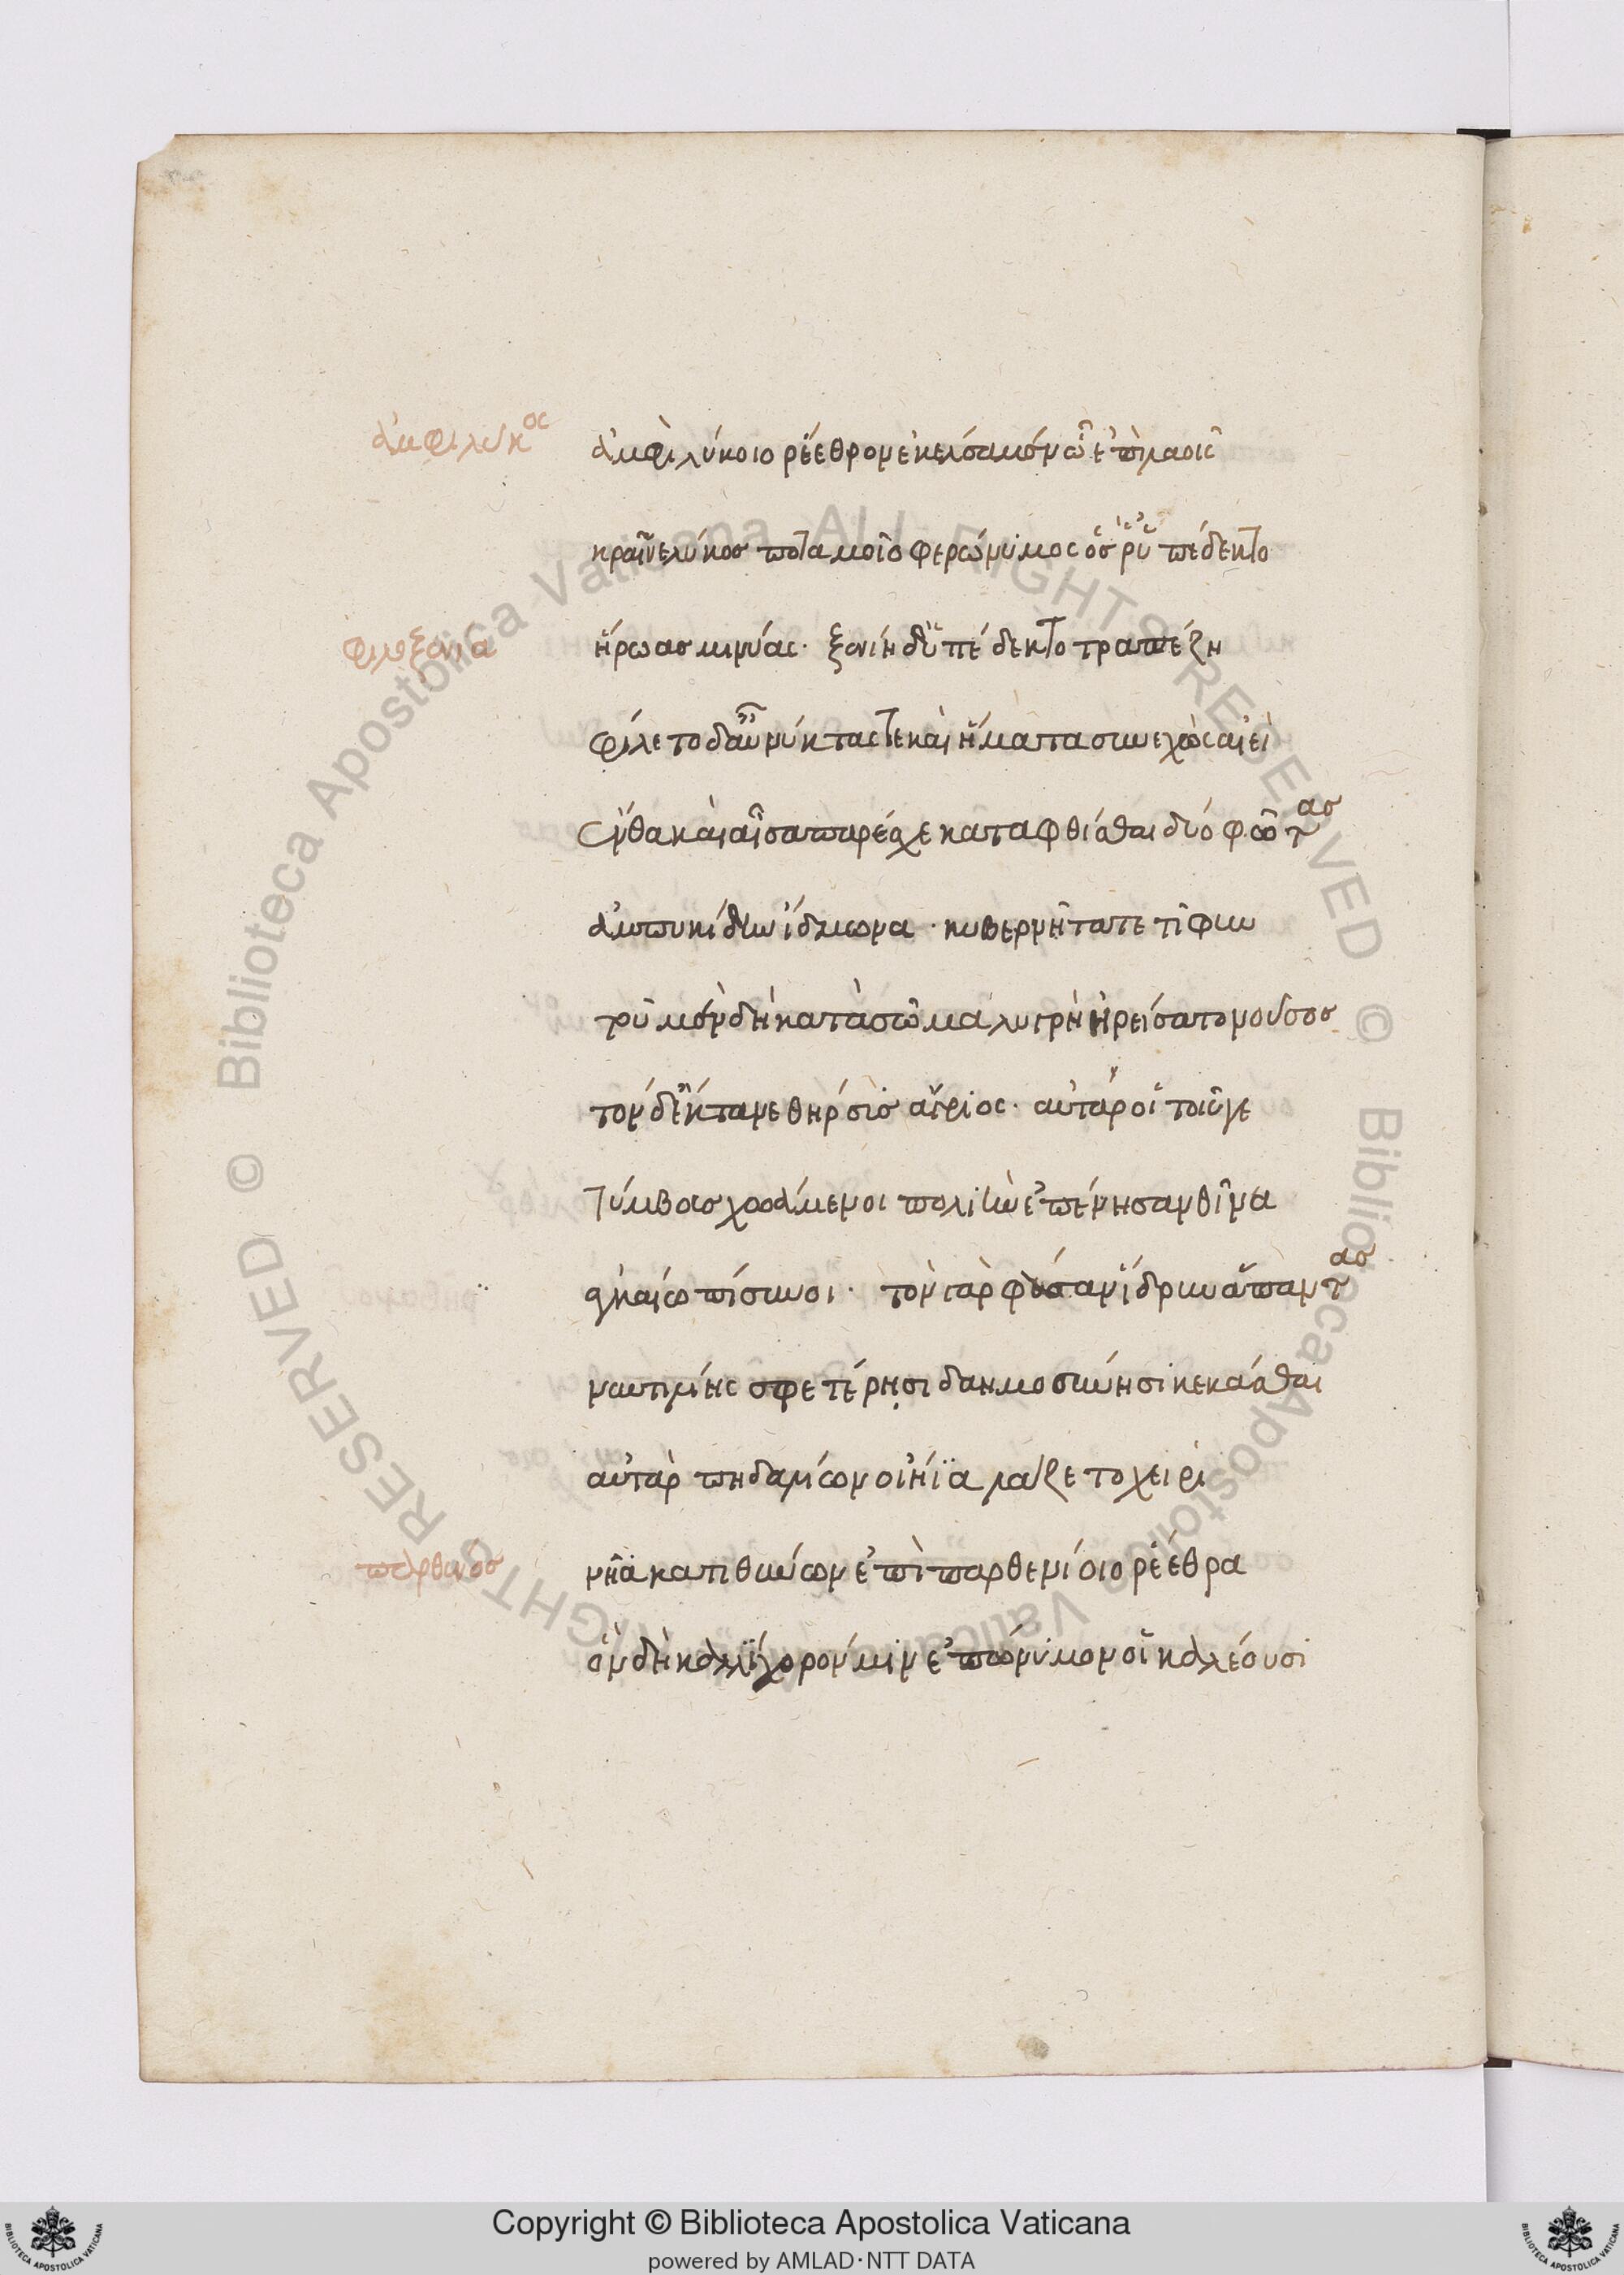 ἀμφίλυκος
ἀμφιλύκοιο ῥέεθρον ἐκέλσαμεν ᾧ ἔπι λαοῖς
κραῖνε λύκος ποταμοῖο φερώνυμος ὅς ῥ' ὑπέδεκτο
φιλοξενία
ἥρωας μινύας· ξενίη δ' ὑπέδεκτο τραπέζη
φίλετο δ' αὖ νύκτας τε καὶ ἤματα συνεχὲς αἰεὶ
ἔνθα καὶ αἶσα παρέσχε καταφθίσθαι δύο φῶτας
ἀμπυκίδην ἴδμωνα· κυβερνητά τε τῖφυν
τοῦ μὲν δὴ κατὰ σῶμα λυγρὴ ἠρείσατο νοῦσος
τὸν δ' ἔκτανε θὴρ σῦς ἄγριος· αὐτὰρ οἱ τοῖγε
τύμβους χωσάμενοι πολιὴν ἐπένησαν θῖνα
ἀγκαίω πίσυνοι· τὸν γὰρ φάσαν ἴδριν ἁπάντας
ναυτιλίης σφετέρησι δαημοσύνησι κεκάσθαι
αὐτὰρ πηδαλίων οἰήϊα λάζετο χειρὶ
παρθένος
νῆα κατιθύνων ἐπὶ παρθενίοιο ῥέεθρα
ὃν δὴ καλλίχορόν μιν ἐπώνυμον οἳ καλέουσι
Copyright © Biblioteca Apostolica Vaticana
powered by AMLAD·NTT DATA